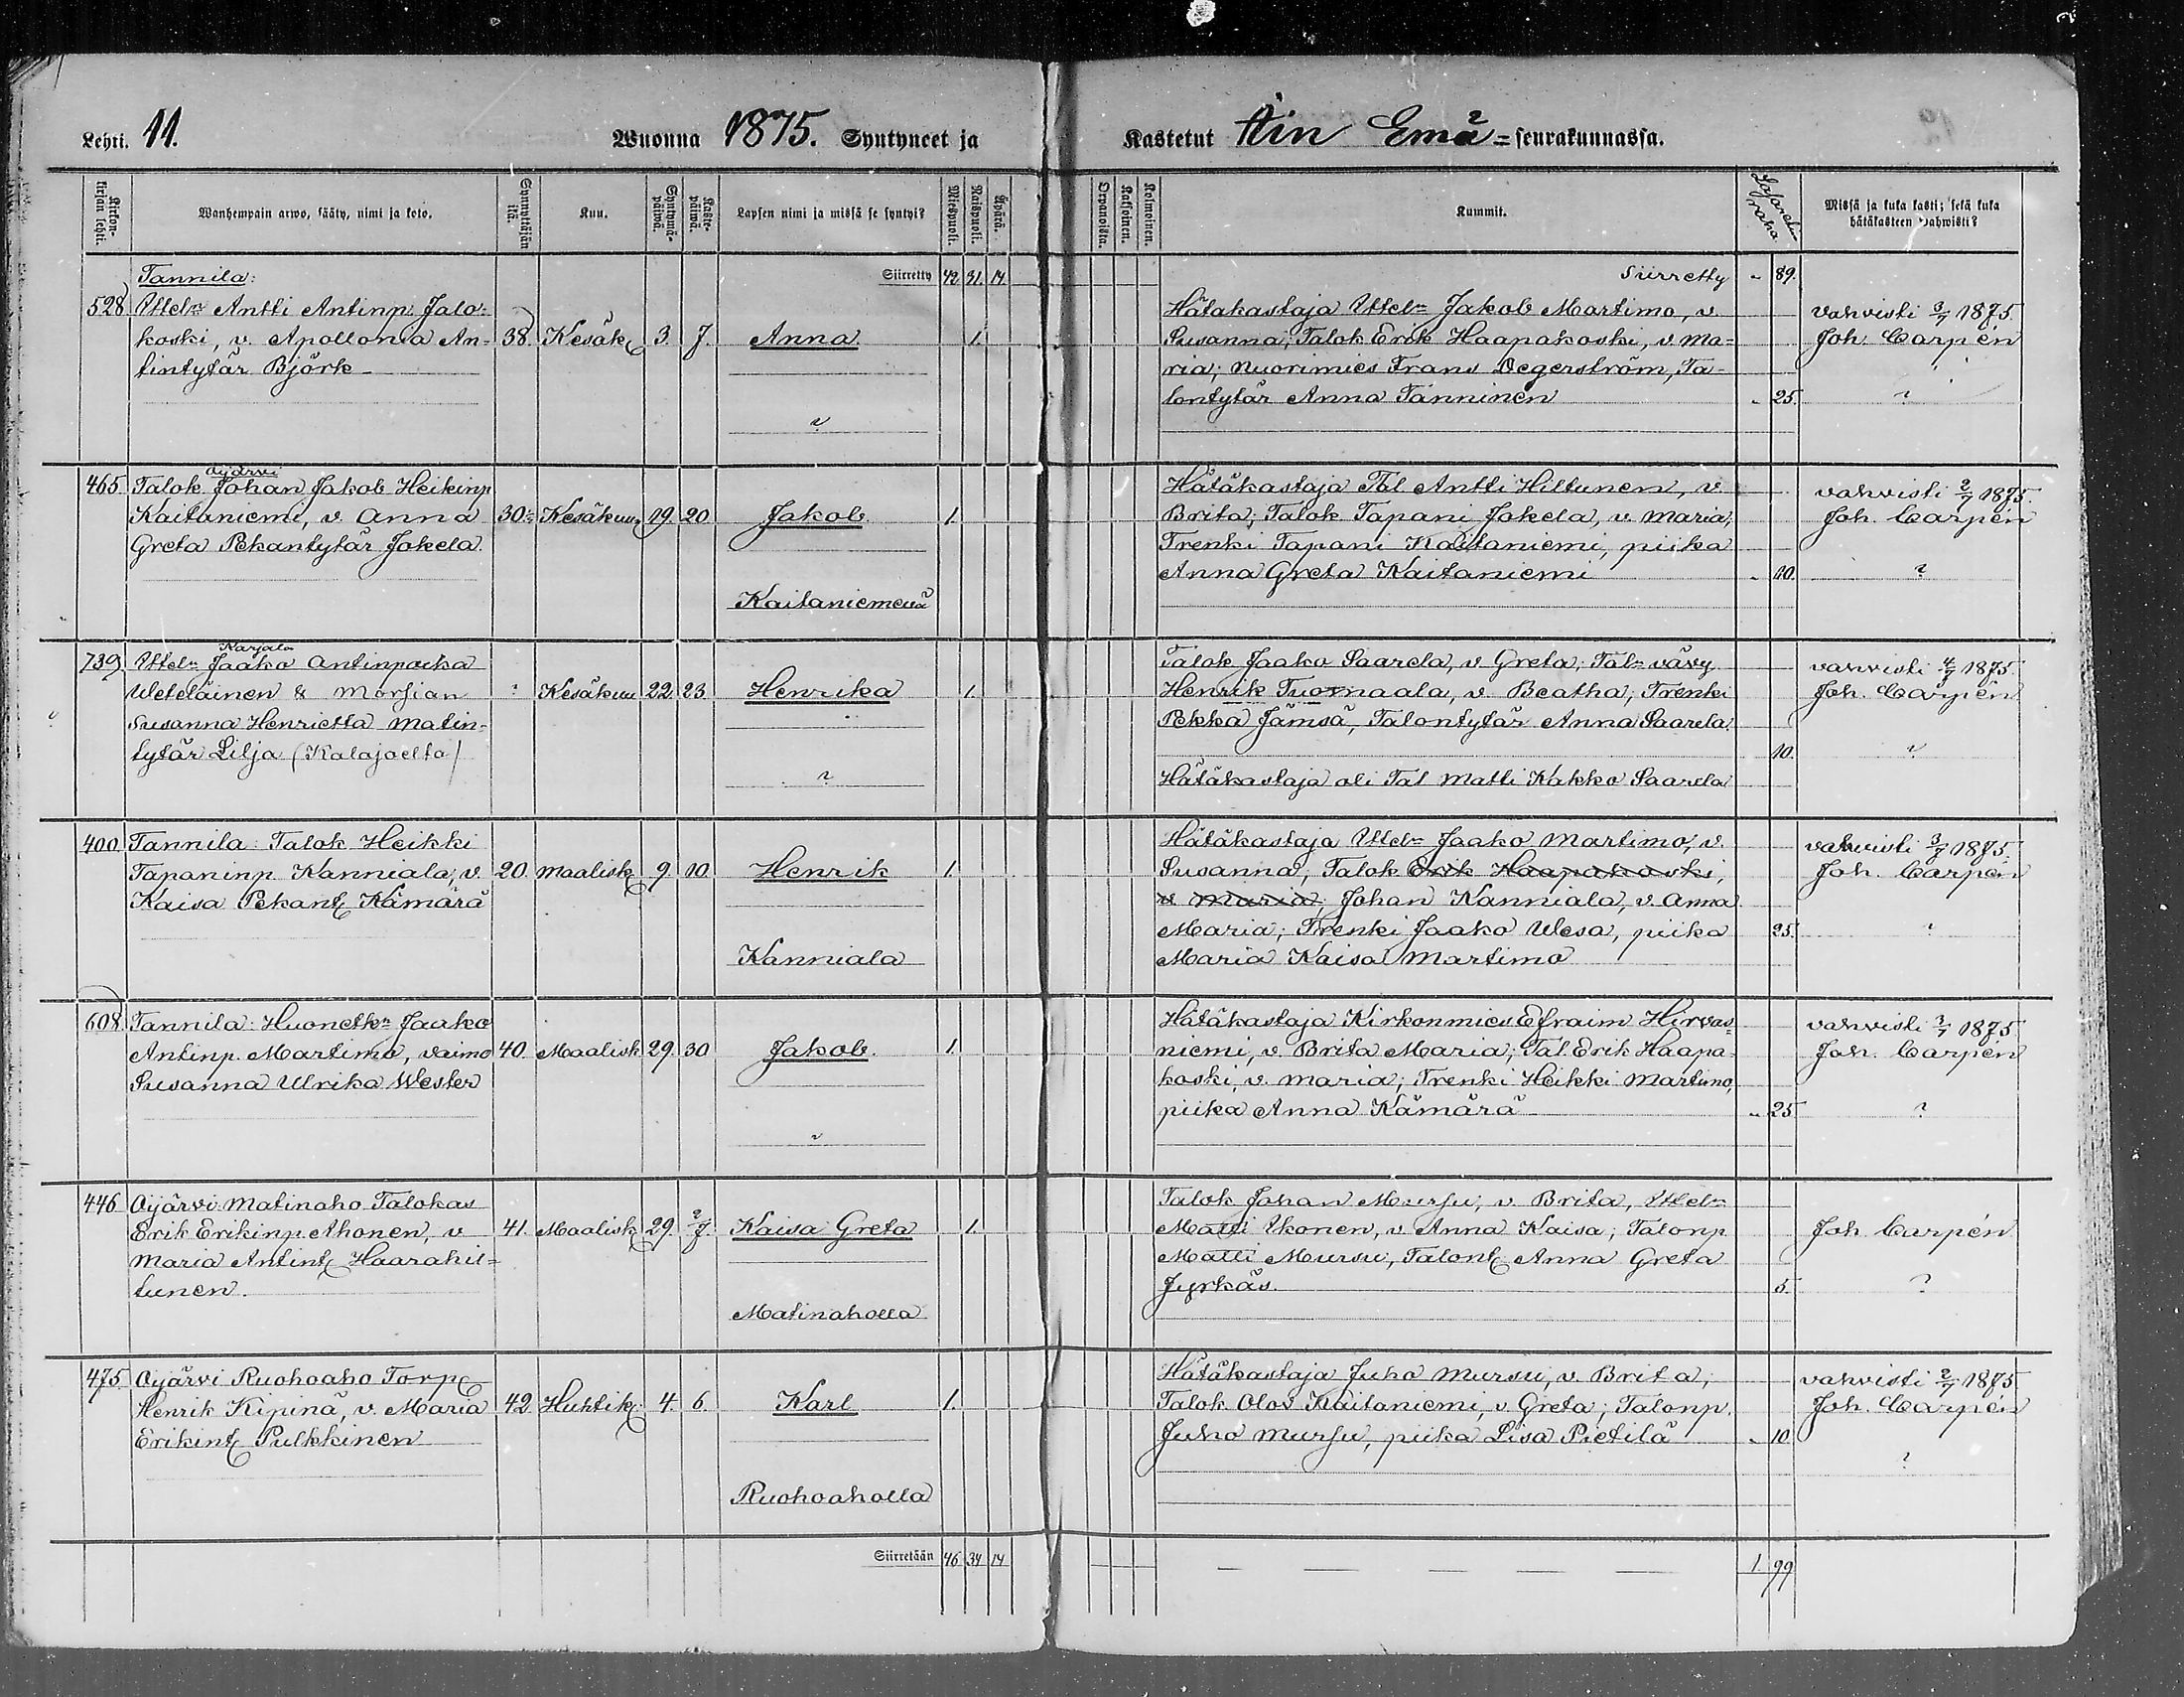 Lehti. 11. Wuonna 1875. Syntyneet ja Kastetut Iin Emä=seurakunnassa.
Kirkon-kirjan lehti. Wanhempain arwo, sääty, nimi ja koto. Synnyttäjän ikä. Kuu. Syntymä-päiwä. Kaste-päiwä. Lapsen nimi ja missä se syntyi? Miespuoli. Waimopuoli. Äpärä. Orpanoista. Kaksoinen. Kolmoinen. Kummit. Lasareth raha Missä ja kuka kasti; sekä kuka hätäkasteen wahwisti?
Tannila: Siirretty 42. 31. 14. Siirretty " 89.
528 Ittel:n Antti Antinp. Jalo- Hätäkastaja Ittel:n Jakob Martimo, v. vahvisti 3/7 1875.
koski, v. Apollonia An- 38 Kesäk 3. 7. Anna 1. Susanna; Talok Erik Haapakoski, v. Ma= Joh. Carpén
tintytär Björk ria; nuorimies Frans Degerström, Ta-
lontytär Anna Tanninen " 25. ?
?
Oijärvi
465 Talok. Johan Jakob Heikinp Hätäkastaja Tal. Antti Hiltunen, v. vahvisti 2/7 1875.
Kaitaniemi, v. Anna 30 Kesäkuu 19. 20 Jakob. 1. Brita; Talok Tapani Jokela, v. Maria; Joh. Carpén
Greta Pekantytär Jokela. Trenki Tapani Kaitaniemi, piika
Anna Greta Kaitaniemi " 10. ?
Kaitaniemessä
Karjala
739 Ittel:n Jaako Antinpoika Talok Jaako Saarela, v Greta; Tal:n vävy vahvisti 4/7 1875
Weteläinen & morsian ? Kesäkuu 22. 23. Henrika 1. Henrik Tuomaala, v. Beatha; Trenki Joh. Carpén
Susanna Henrietta Matin- Pekka Jämsä, Talontytär Anna Saarela.
tytär Lilja (Kalajoelta) 10. ?
? Hätäkastaja oli Tal Matti Kakko Saarela
400 Tannila: Talok Heikki Hätäkastaja Ittel:n Jaako Martimo, v. vahvisti 3/7 1875.
Tapaninp. Kanniala, v. 20. Maalisk 9. 10. Henrik 1. Susanna; Talok Erik Haapakoski, Joh. Carpén
Kaisa Pekant. Kämärä v. Maria, Johan Kanniala, v. Anna
Maria; Trenki Jaako Wesa, piika 25. ?
Kanniala Maria Kaisa Martimo
608. Tannila: Huonetk:n Jaako Hätäkastaja Kirkonmies Efraim Hirvas- vahvisti 3/7 1875
Antinp. Martimo, vaimo 40. Maalisk 29. 30 Jakob. 1. niemi, v. Brita Maria; Tal. Erik Haapa- Joh. Carpén
Susanna Ulrika Wester koski, v. Maria; Trenki Heikki Martimo,
piika Anna Kämärä " 25 ?
?
446 Oijärvi Matinaho Talokas Talok Johan Mursu, v. Brita, Ittel:n
Erik Erikinp. Ahonen, v 41. Maalisk 29. 2/7. Kaisa Greta 1. Matti Ikonen, v. Anna Kaisa; Talonp Joh Carpén
Maria Antint. Haarahil- Matti Mursu, Talont. Anna Greta
tunen. Jyrkäs. 5. ?
Matinaholla
475. Oijärvi Ruohoaho Torp. Hätäkastaja Juho Mursu, v. Brita; vahvisti 2/7 1875
Henrik Kipinä, v. Maria 42 Huhtik. 4. 6. Karl 1. Talok Olov Kaitaniemi, v. Greta; Talonp. Joh. Carpén
Erikint. Pulkkinen Juho Mursu, piika Lisa Pietilä " 10 ?
Ruohoaholla
Siirretään 46 34 14 — — — — — 1 99